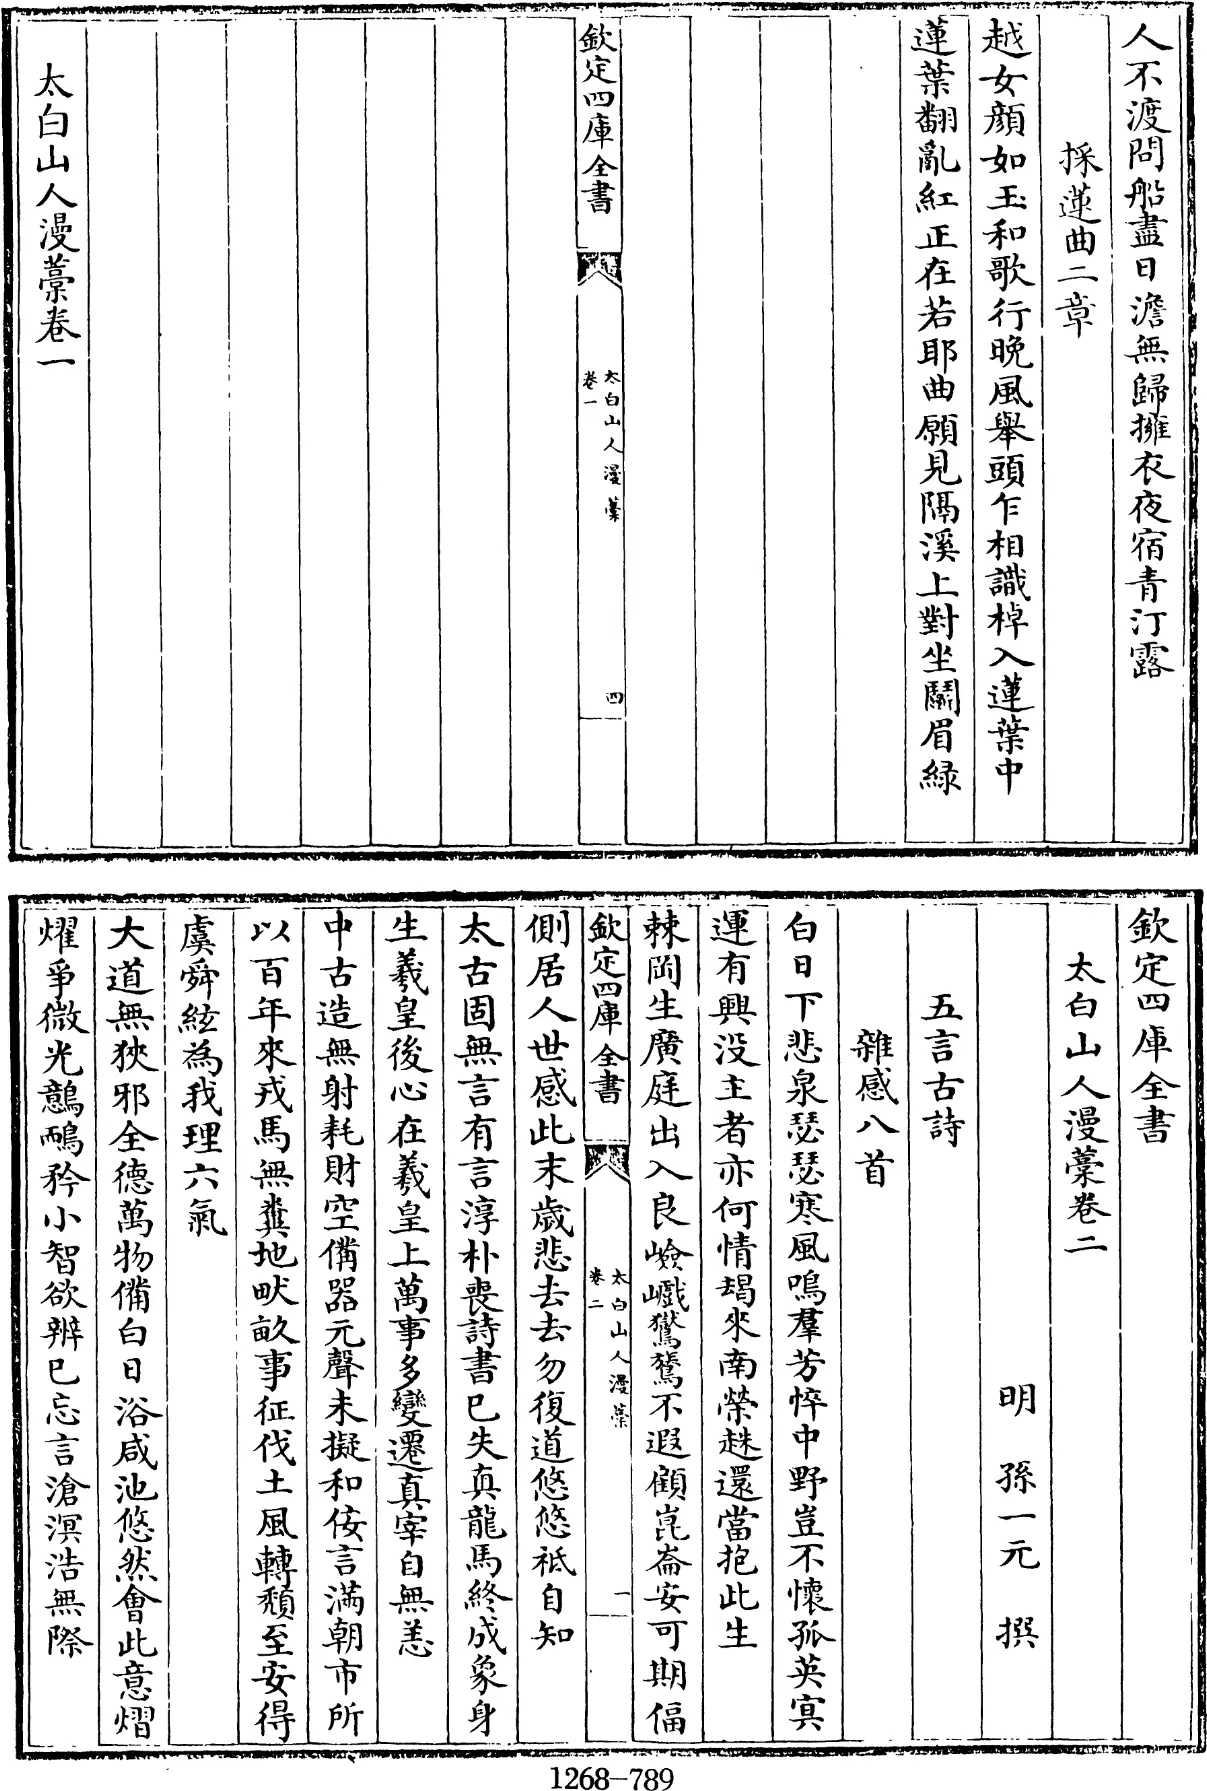 人不渡問船盡日澹無歸擁衣夜宿青汀露
採蓮曲二章
越女顔如玉和歌行晚風舉頭乍相識棹入蓮葉中
蓮葉翻亂紅正在若耶曲願見隔溪上對坐鬭眉緑
欽定四庫全書
太白山人漫藁
卷一
四
太白山人漫藁卷一
欽定四庫全書
太白山人漫藁卷二
明 孫一元 撰
五言古詩
雜感八首
白日下悲泉瑟瑟寒風鳴羣芳悴中野豈不懷孤英寅
運有興没主者亦何情朅來南榮趎還當抱此生
棘岡生廣庭出入良嶮巇鷲鷔不遐顧崑崙安可期偪
欽定四庫全書
太白山人漫藁
卷二
一
側居人世感此末歲悲去去勿復道悠悠祗自知
太古固無言有言淳朴喪詩書已失真龍馬終成象身
生羲皇後心在羲皇上萬事多變遷真宰自無恙
中古造無射耗財空備器元聲未擬和佞言滿朝市所
以百年來戎馬無糞地畎畝事征伐土風轉頽至安得
虞舜絃為我理六氣
大道無狹邪全德萬物備白日浴咸池悠然會此意熠
燿爭微光鷾鴯矜小智欲辨已忘言滄溟浩無際
1268-789